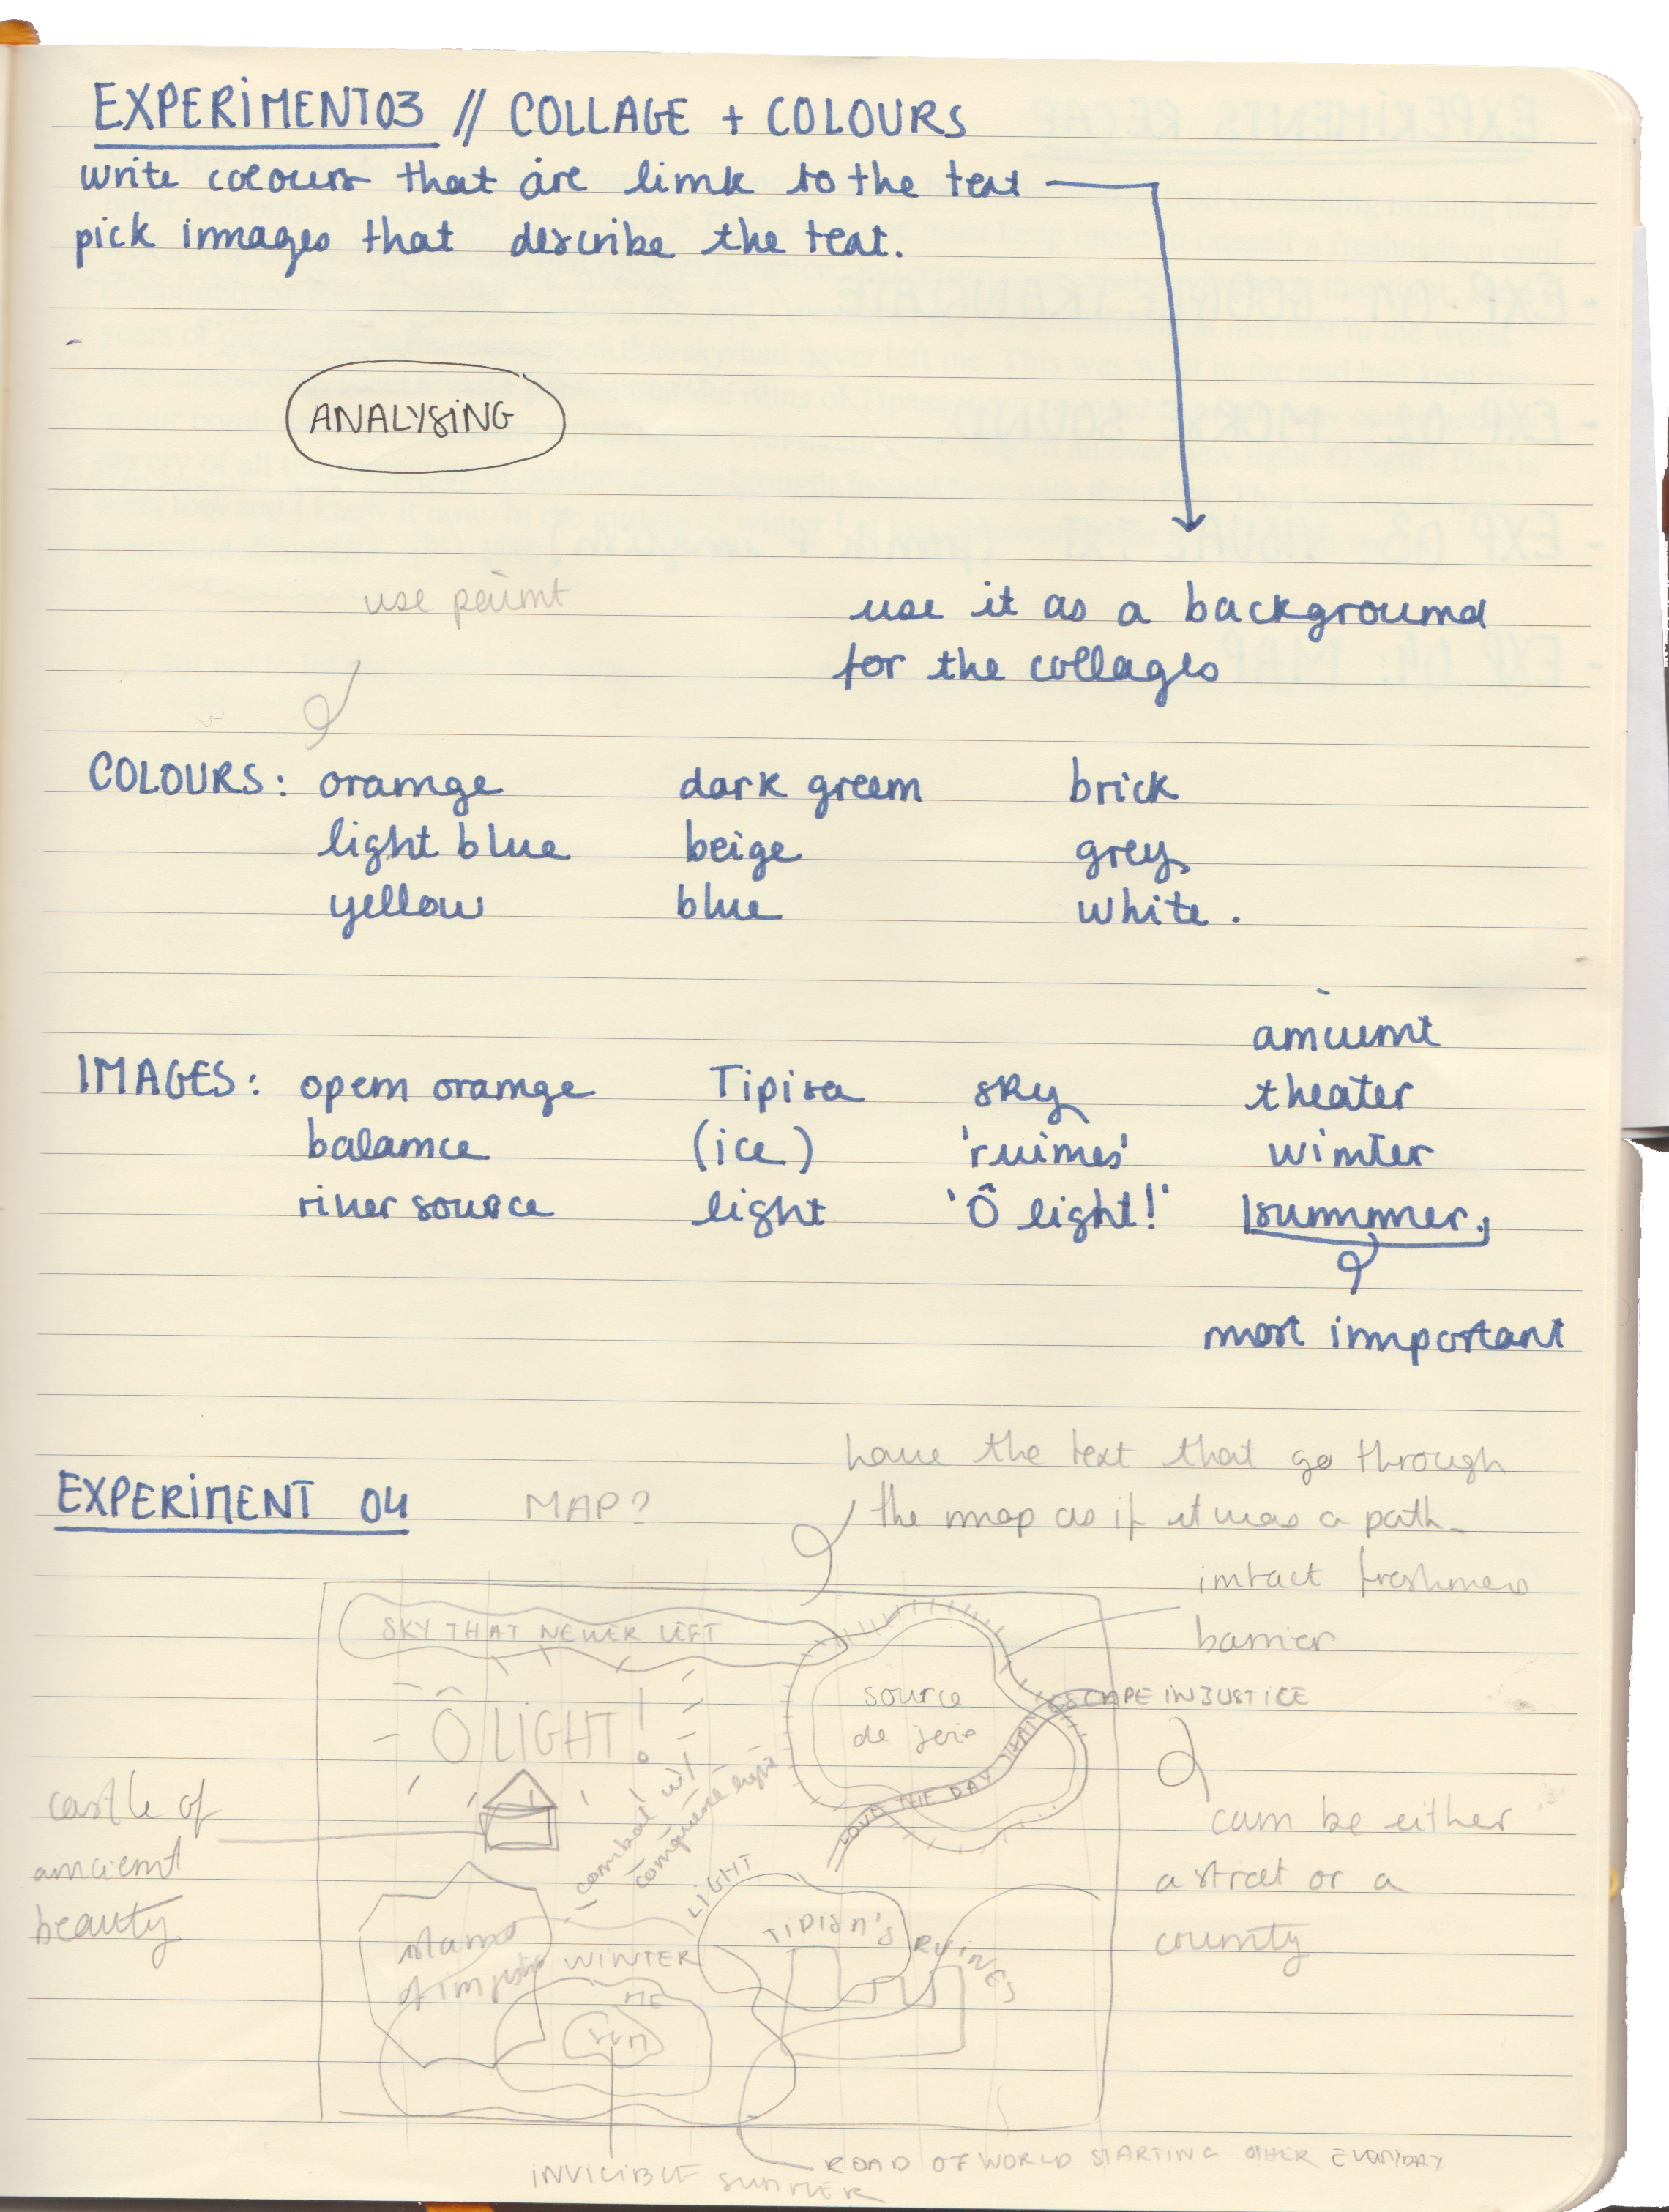 EXPERIMENT03 // COLLAGE + COLOURS
write colours that are link to the text
pick images that describe the text.
ANALYSING
use paint
use it as a background
for the collages
COLOURS: orange dark green brick
light blue beige grey
yellow blue white.
ancient
IMAGES: open orange Tipisa sky theater
balance (ice) 'ruines' winter
river source light 'Ô light!' summer.
most important
have the text that go through
EXPERIMENT 04 MAP? the map as if it was a path-
intact freshness
barrier
SKY THAT NEVER LEFT
source
de joie
ESCAPE INJUSTICE
Ô LIGHT!
LOVE THE DAY THAT
castle of
ancient
beauty
can be either
a street or a
county
combat w/
LIGHT
TIPISA'S RUINES
of injustice
WINTER
ME
sun
ROAD OF WORLD STARTING OTHER EVERYDAY
INVICIBLE SUMMER